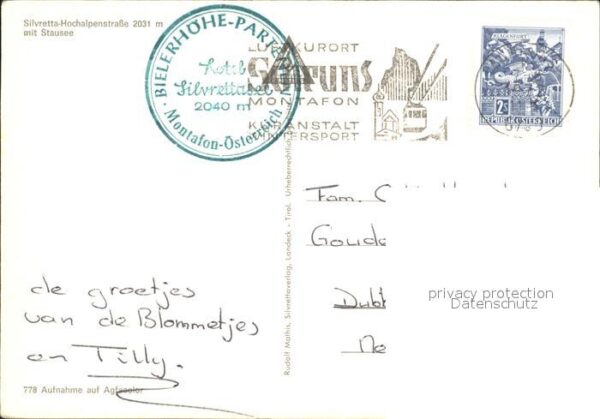 Silvretta-Hochalpenstraße 2031 m
mit Stausee
BIELERHÖHE-PARTENEN
Hotel
Silvrettasee
2040 m
Montafon-Österreich
LUFTKURORT
Schruns
MONTAFON
KURANSTALT
WINTERSPORT
KLAGENFURT
2 S
REPUBLIK ÖSTERREICH
Fam.
Gouda
Dubb
Ne
privacy protection
Datenschutz
de groetjes
van de Blommetjes
en Tilly.
Rudolf Mathis, Silvrettaverlag, Landeck - Tirol. Urheberrechtlich
778 Aufnahme auf Agfacolor